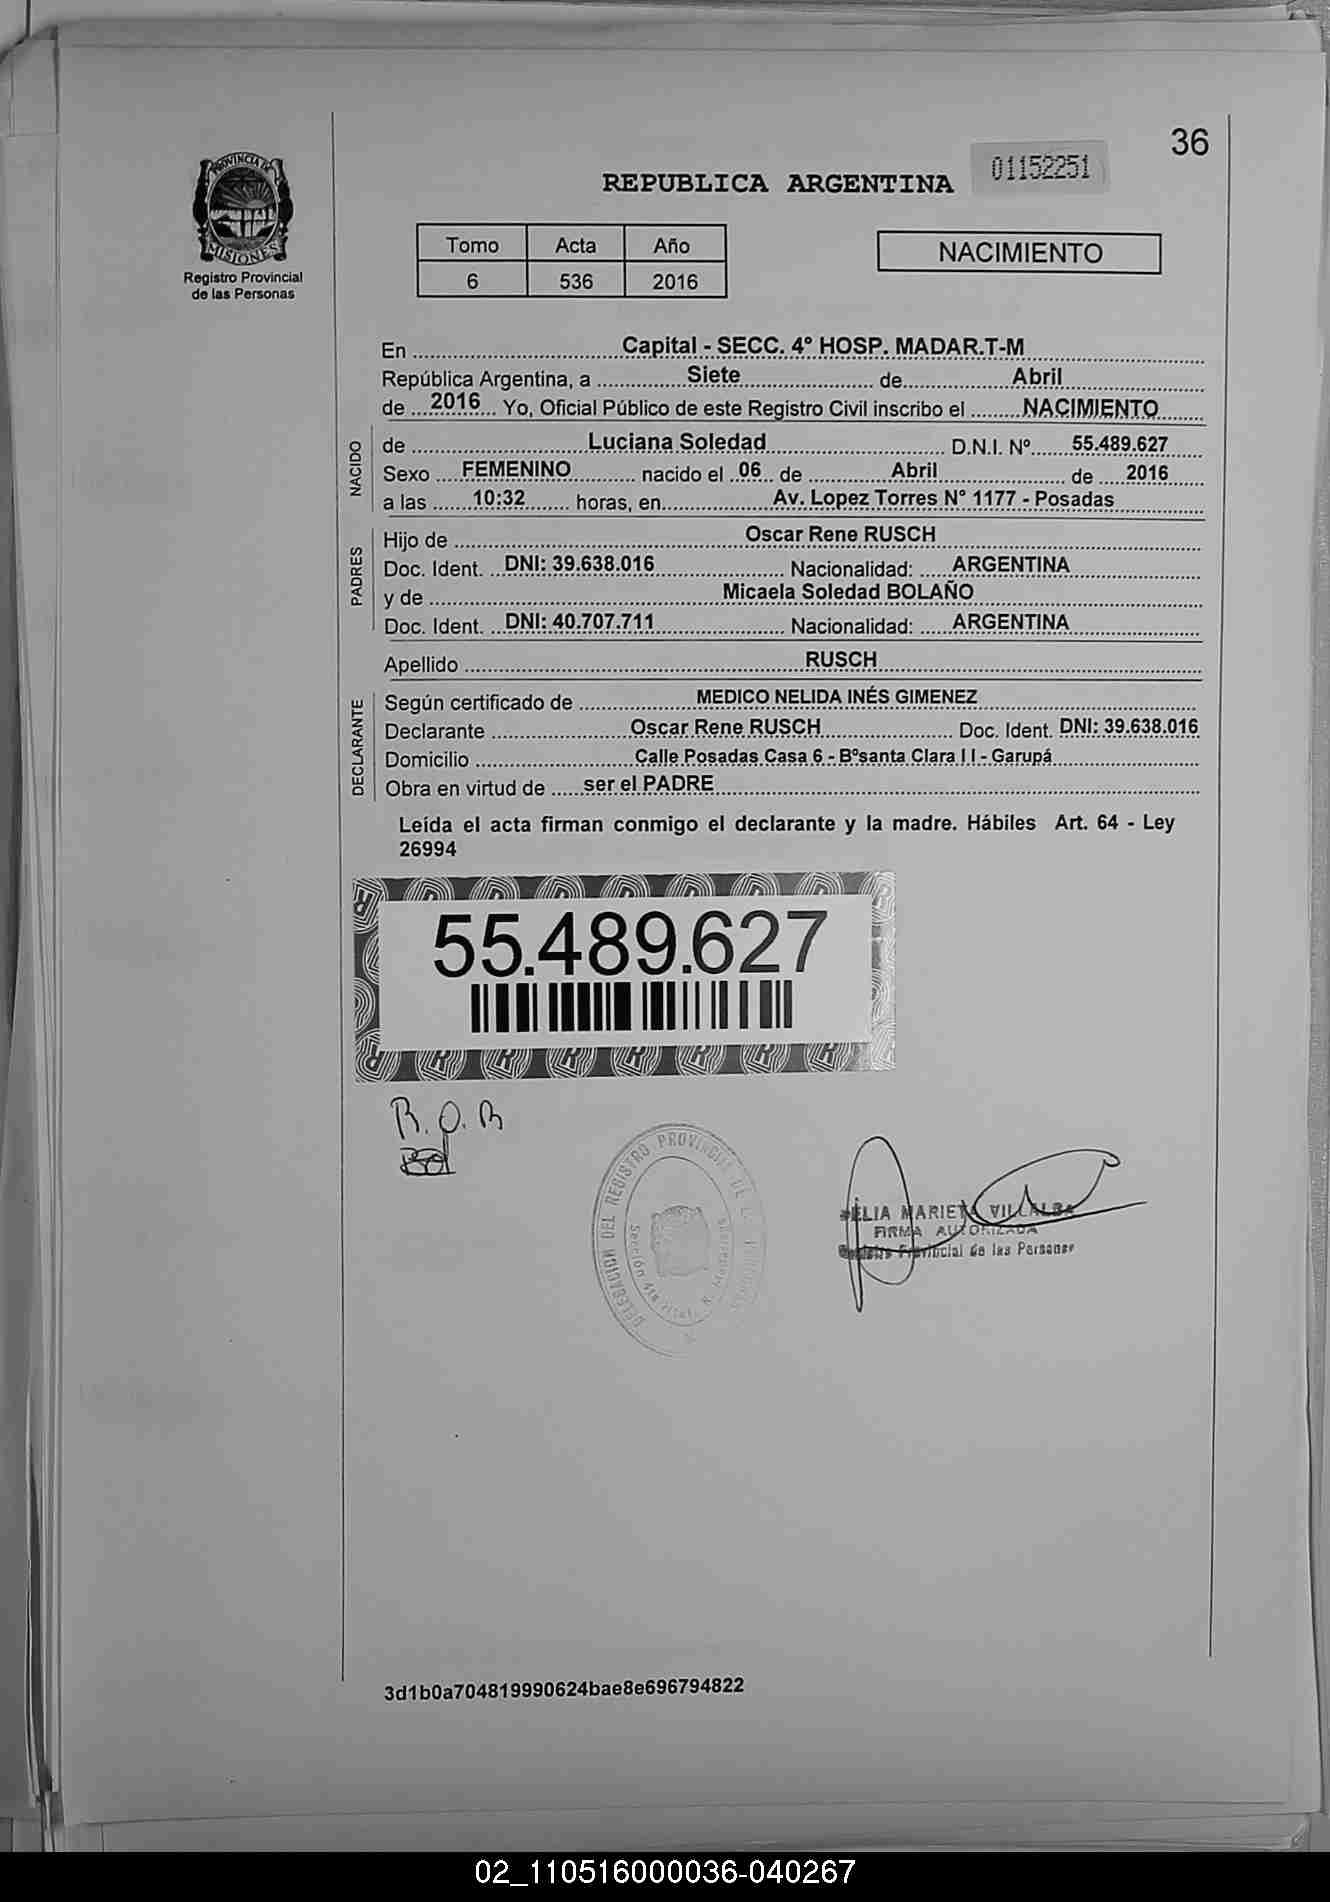 36
01152251
REPUBLICA ARGENTINA
PROVINCIA DE
MISIONES
Registro Provincial
de las Personas
Tomo Acta Año
6 536 2016
NACIMIENTO
En Capital - SECC. 4º HOSP. MADAR.T-M
República Argentina, a Siete de Abril
de 2016 Yo, Oficial Público de este Registro Civil inscribo el NACIMIENTO
NACIDO
de Luciana Soledad D.N.I. Nº 55.489.627
Sexo FEMENINO nacido el 06 de Abril de 2016
a las 10:32 horas, en Av. Lopez Torres N° 1177 - Posadas
PADRES
Hijo de Oscar Rene RUSCH
Doc. Ident. DNI: 39.638.016 Nacionalidad: ARGENTINA
y de Micaela Soledad BOLAÑO
Doc. Ident. DNI: 40.707.711 Nacionalidad: ARGENTINA
Apellido RUSCH
DECLARANTE
Según certificado de MEDICO NELIDA INÉS GIMENEZ
Declarante Oscar Rene RUSCH Doc. Ident. DNI: 39.638.016
Domicilio Calle Posadas Casa 6 - Bºsanta Clara I I - Garupá
Obra en virtud de ser el PADRE
Leída el acta firman conmigo el declarante y la madre. Hábiles Art. 64 - Ley
26994
55.489.627
R.O.R
Bol
DELEGACION DEL REGISTRO PROVINCIAL DE
Sección 4ta
MARIETA VILLALBA
FIRMA AUTORIZADA
Provincial de las Personas
3d1b0a704819990624bae8e696794822
02_110516000036-040267